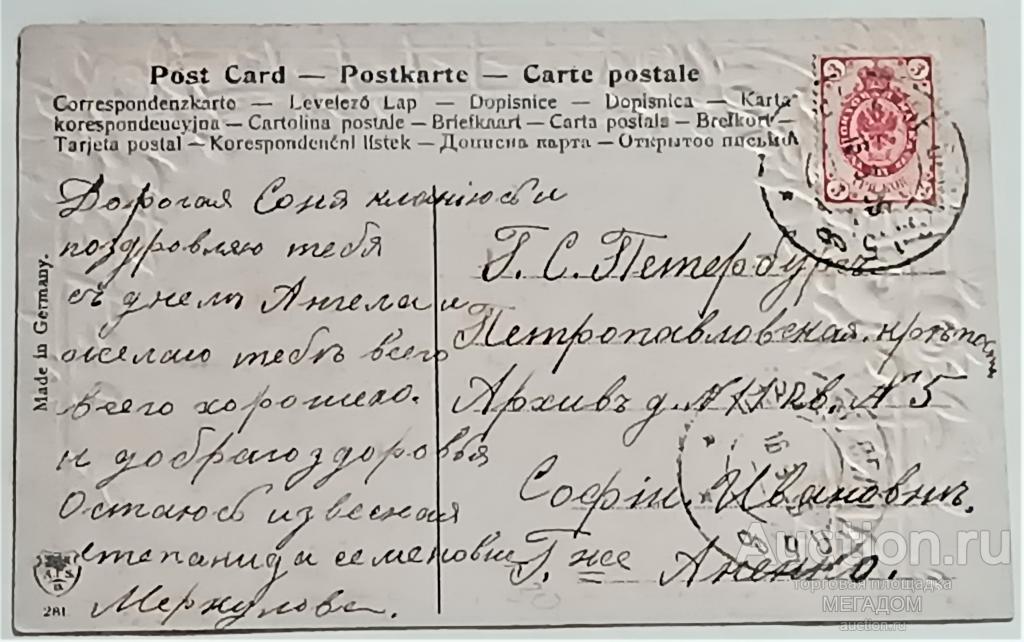 Post Card — Postkarte — Carte postale
Correspondenzkarte — Levelező Lap — Dopisnice — Dopisnica — Karta
korespondencyjna — Cartolina postale — Briefkaart — Carta postala — Brefkort —
Tarjeta postal — Korespondenční listek — Дописна карта — Открытое письмо
Дорогая Соня кланіюсь и
поздровляю тебя
съ днемъ Ангела и
желаю тебѣ всего
всего хорошего.
и добраго здоровья
Остаюсь извесная
степанида семеновна
Меркулова.
Г. С. Петербургъ
Петропавловская крѣпость
Архивъ д. № кв. № 5
Софіи Ивановнѣ
Г. же
Made in Germany.
281
3
3
3
3
Auction.ru
торговая площадка
МЕГАДОМ
auction.ru